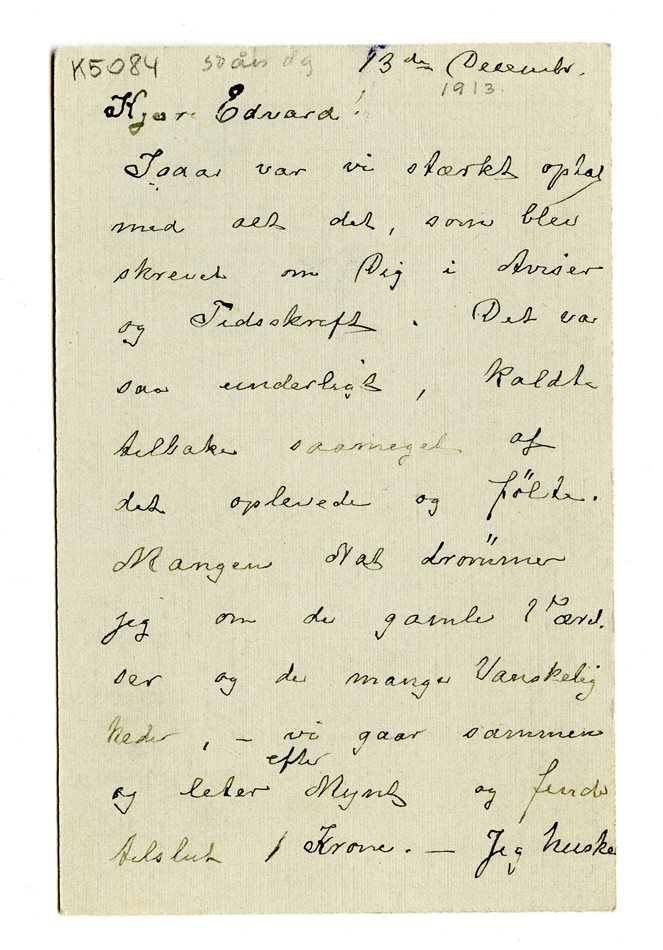 K5084 50 års dg 13de Decembr.
1913.
Kjære Edvard!
Iaar var vi stærkt optat
med alt det, som blev
skrevet om Dig i Aviser
og Tidsskrift. Det var
saa underligt, kaldte
tilbake saameget af
det oplevede og følte.
Mangen Nat drømmer
jeg om de gamle Færd.
ser og de mange Vanskelig
heder, – vi gaar sammen
og leter efter Mynt og finde
tilslut 1 Krone. – Jeg huske